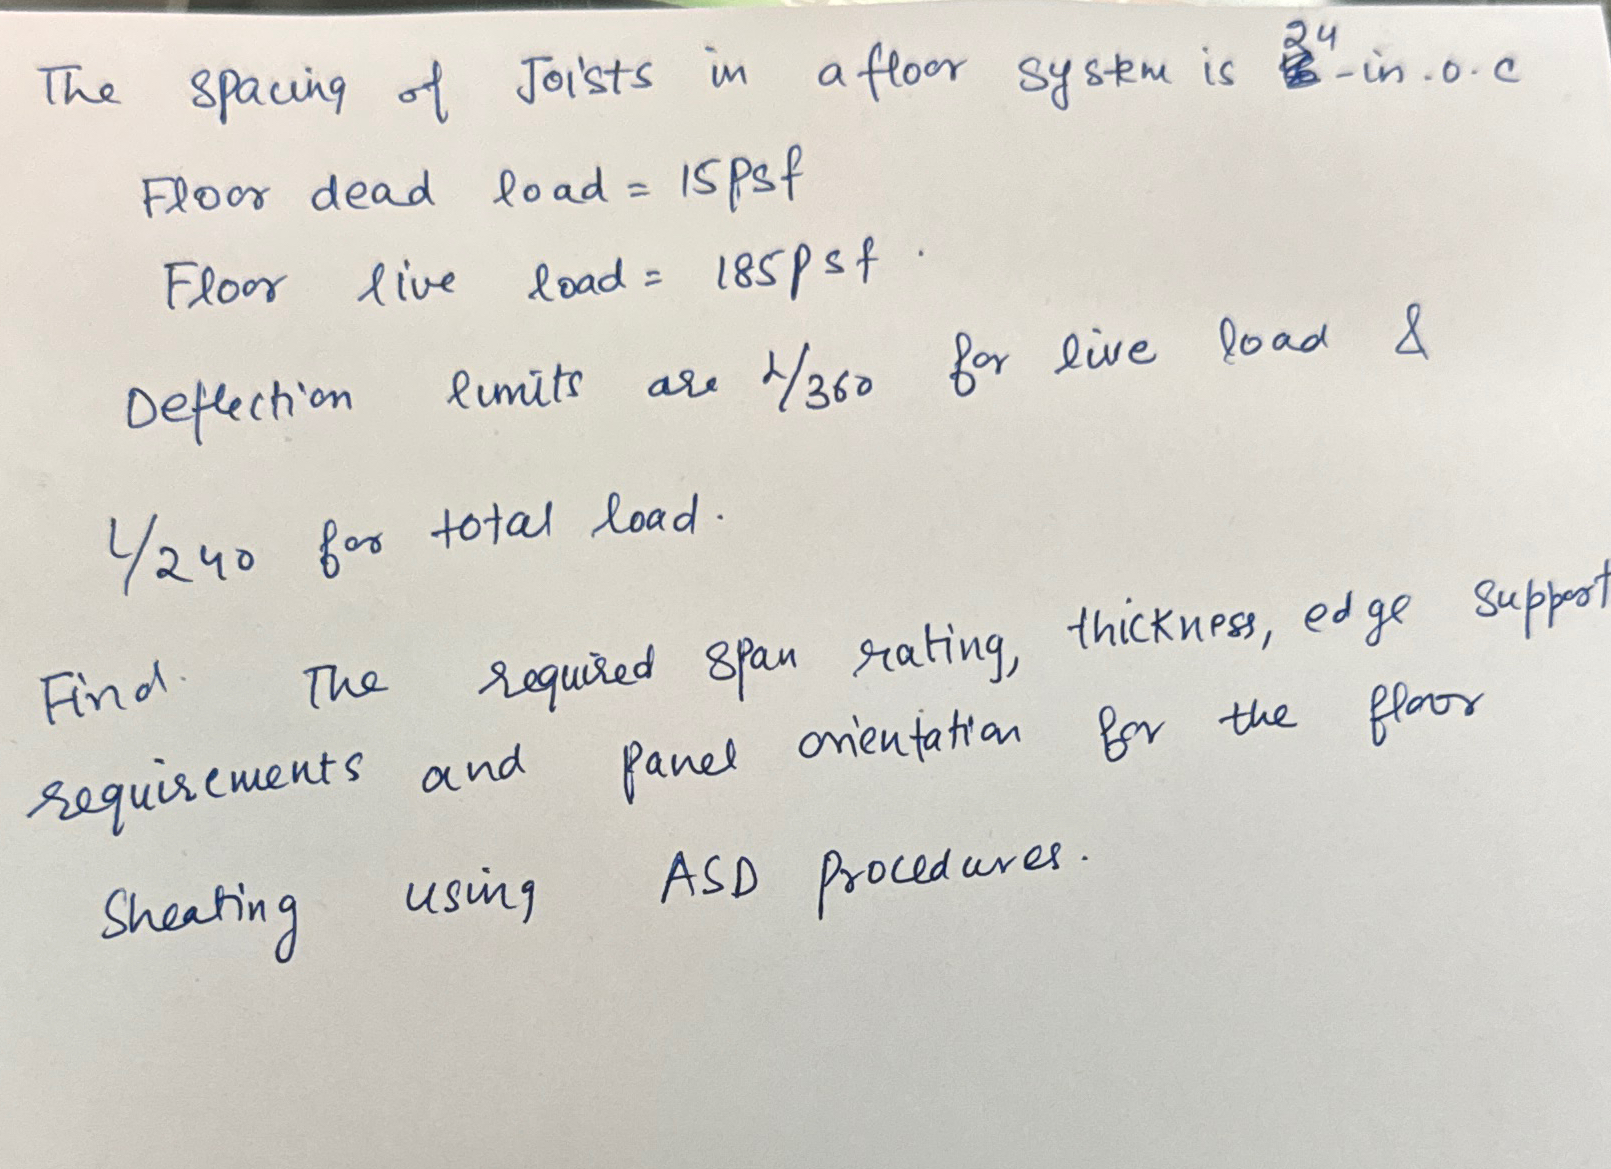 The spacing of Joists in a floor system is 24-in.o.c
Floor dead load = 15psf
Floor live load = 185psf.
Deflection limits are L/360 for live load &
L/240 for total load.
Find. The required span rating, thickness, edge support
requirements and panel orientation for the floor
Sheating using ASD procedures.